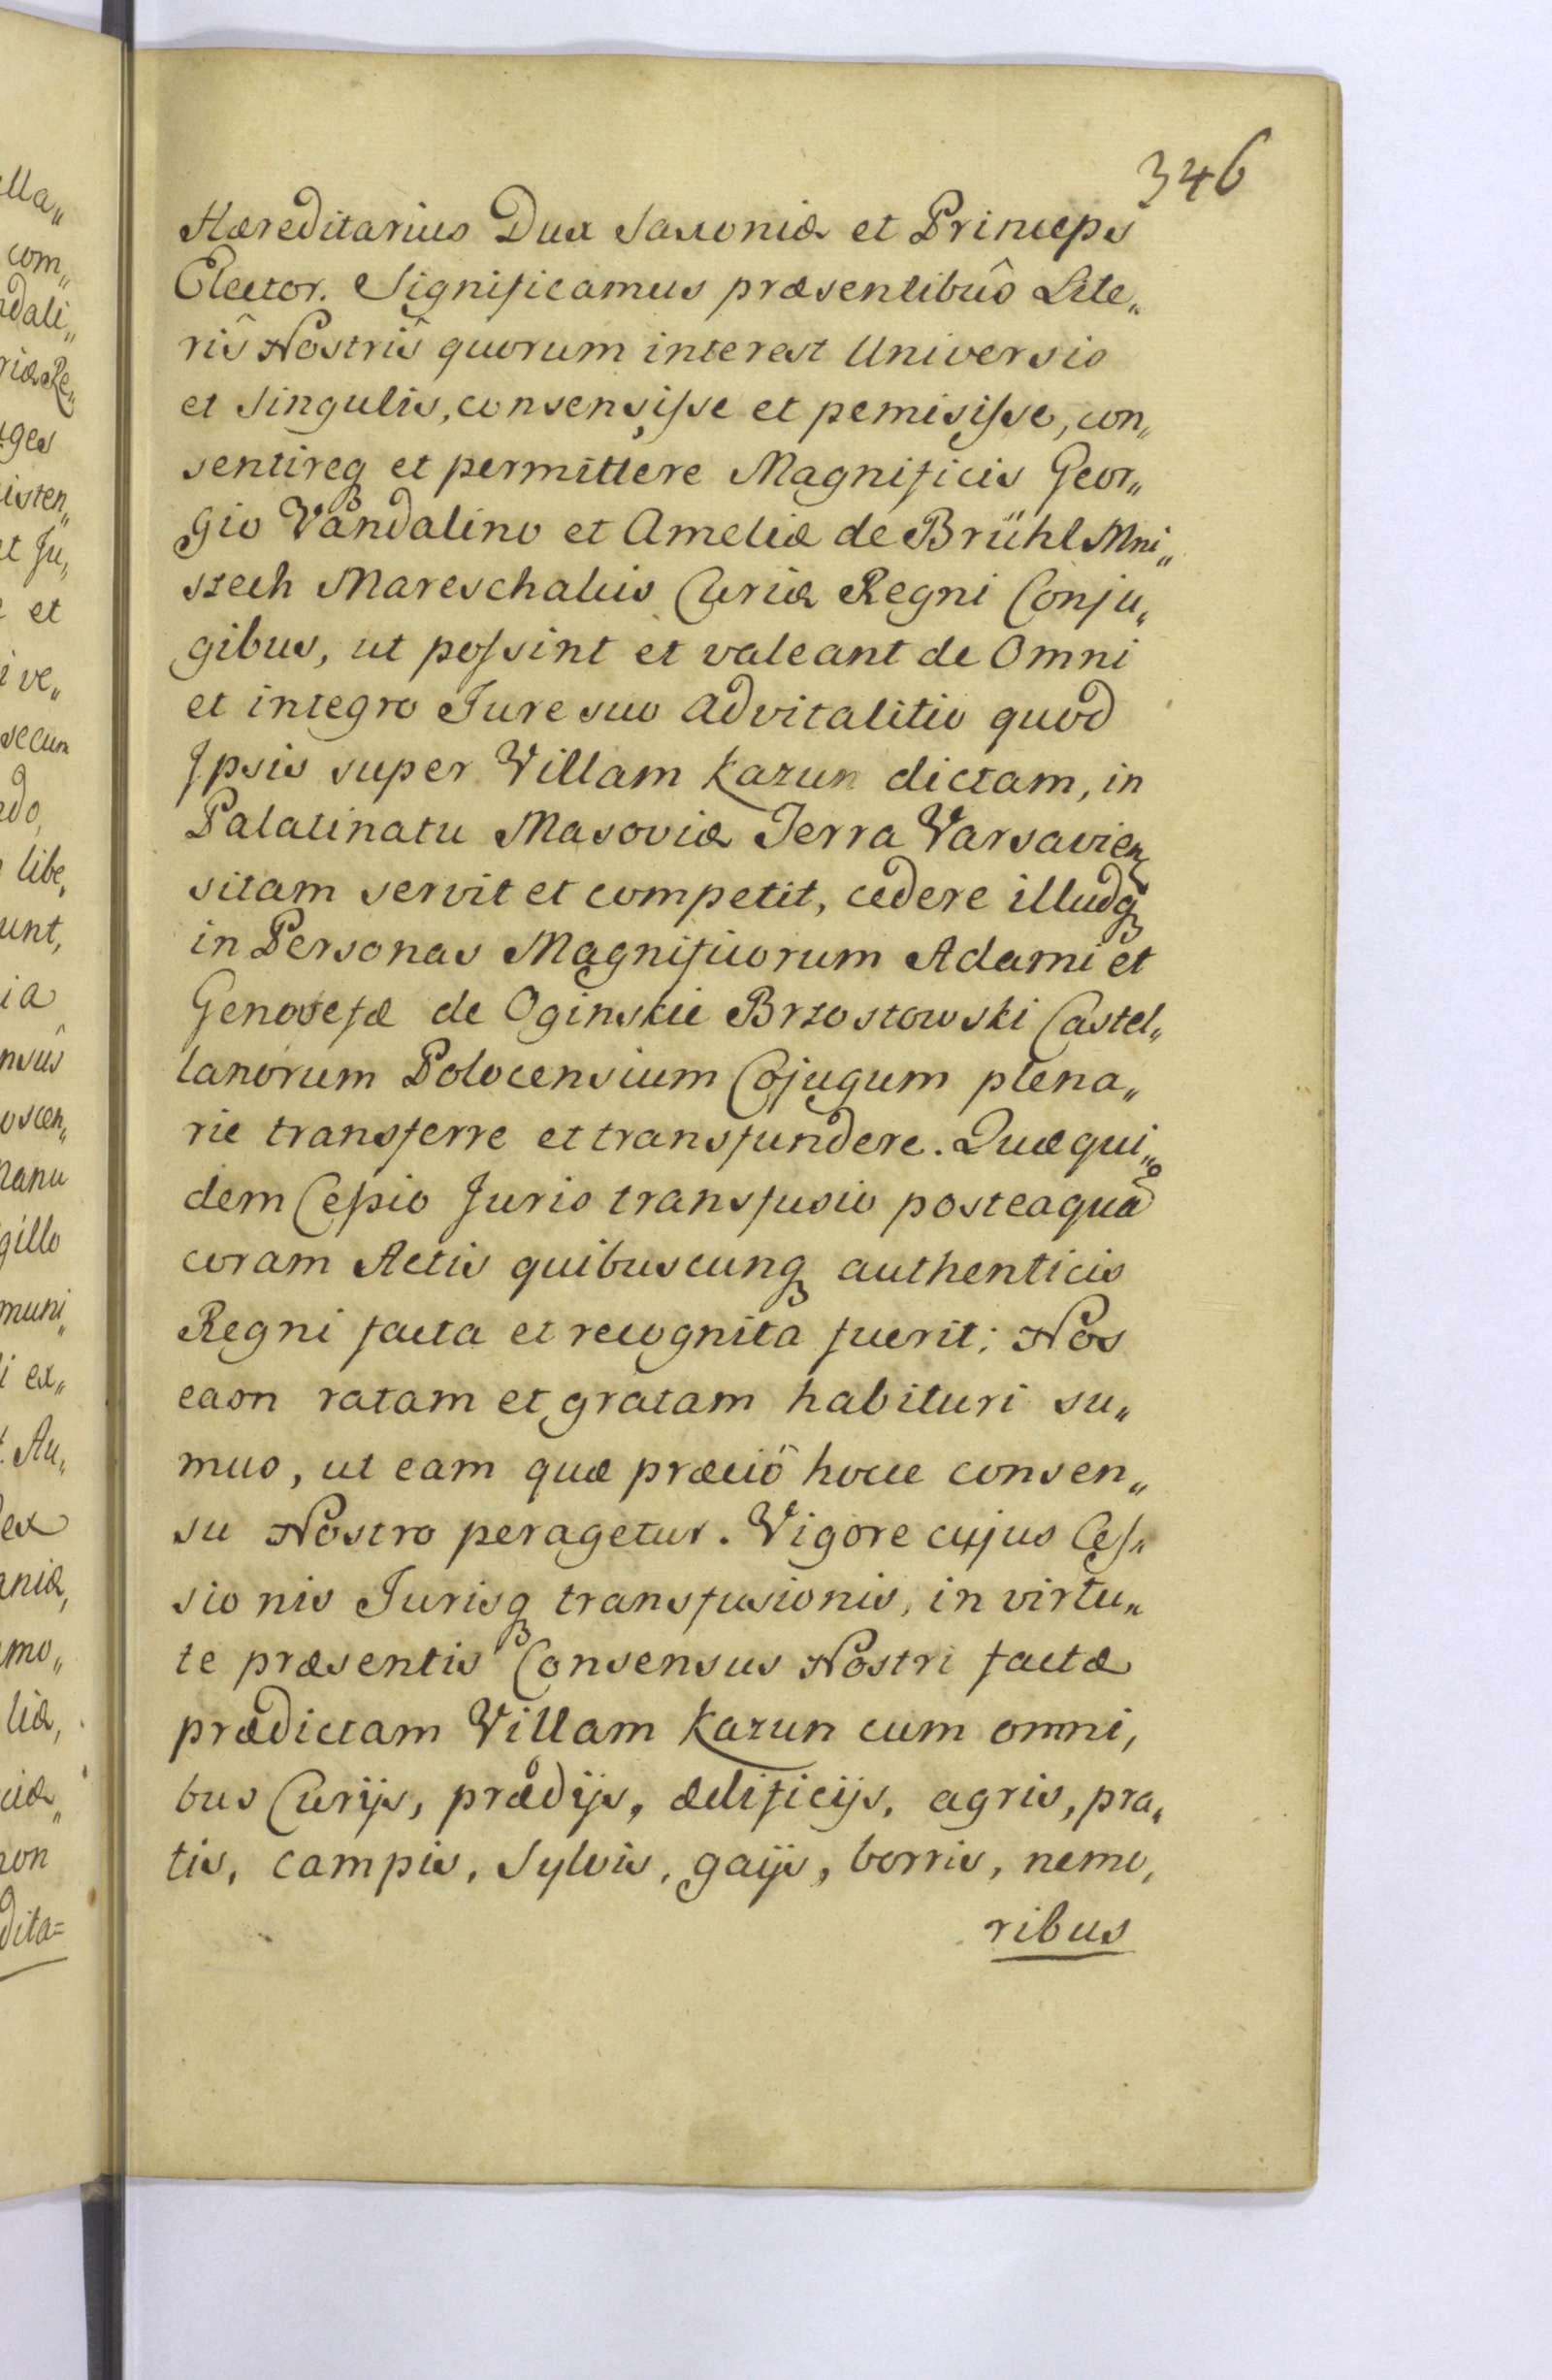 346
Hæreditarius Dux Saxoniæ et Princeps
Elector. Significamus præsentibûs Lite„
rîs Nostrîs quorum interest Universis
et Singulis, consensisse et pemisisse, con„
sentireq et permittere Magnificis Geor„
gio Vandalino et Ameliæ de Brühl Mni„
szech Mareschalcis Curiæ Regni Conju„
gibus, ut possint et valeant de Omni
et integro Jure suo advitalitio quod
Ipsis super Villam Kazun dictam, in
Palatinatu Masoviæ Terra Varsavien
sitam servit et competit, cedere illudq
in Personas Magnificorum Adami et
Genovefæ de Oginskie Brzostowski Castel„
lanorum Polocensium Cojugum plena„
rie transferre et transfundere. Quæ qui„
dem Cessio Juris transfusio posteaquã
coram Actis quibuscunq authenticis
Regni facta et recognita fuerit; Nos
eam ratam et gratam habituri su„
mus, ut eam quæ præviô hocce consen„
su Nostro peragetur. Vigore cujus Ces„
sionis Jurisq transfusionis, in virtu„
te præsentis Consensus Nostri factæ
prædictam Villam Kazun cum omni,
bus Curijs, prædijs, ædificijs, agris, pra„
tis, campis, Sylvis, gaijs, borris, nemo,
ribus
lla„
com„
ndali„
riæ Re„
uges
isten„
et Ju„
et
i ve„
secum
ndo,
libe,
unt,
ia
nsûs
oscen„
manu
gillo
muni„
i ex„
Au„
ex
aniæ,
mo„
liæ,
ciæ„
non
dita=